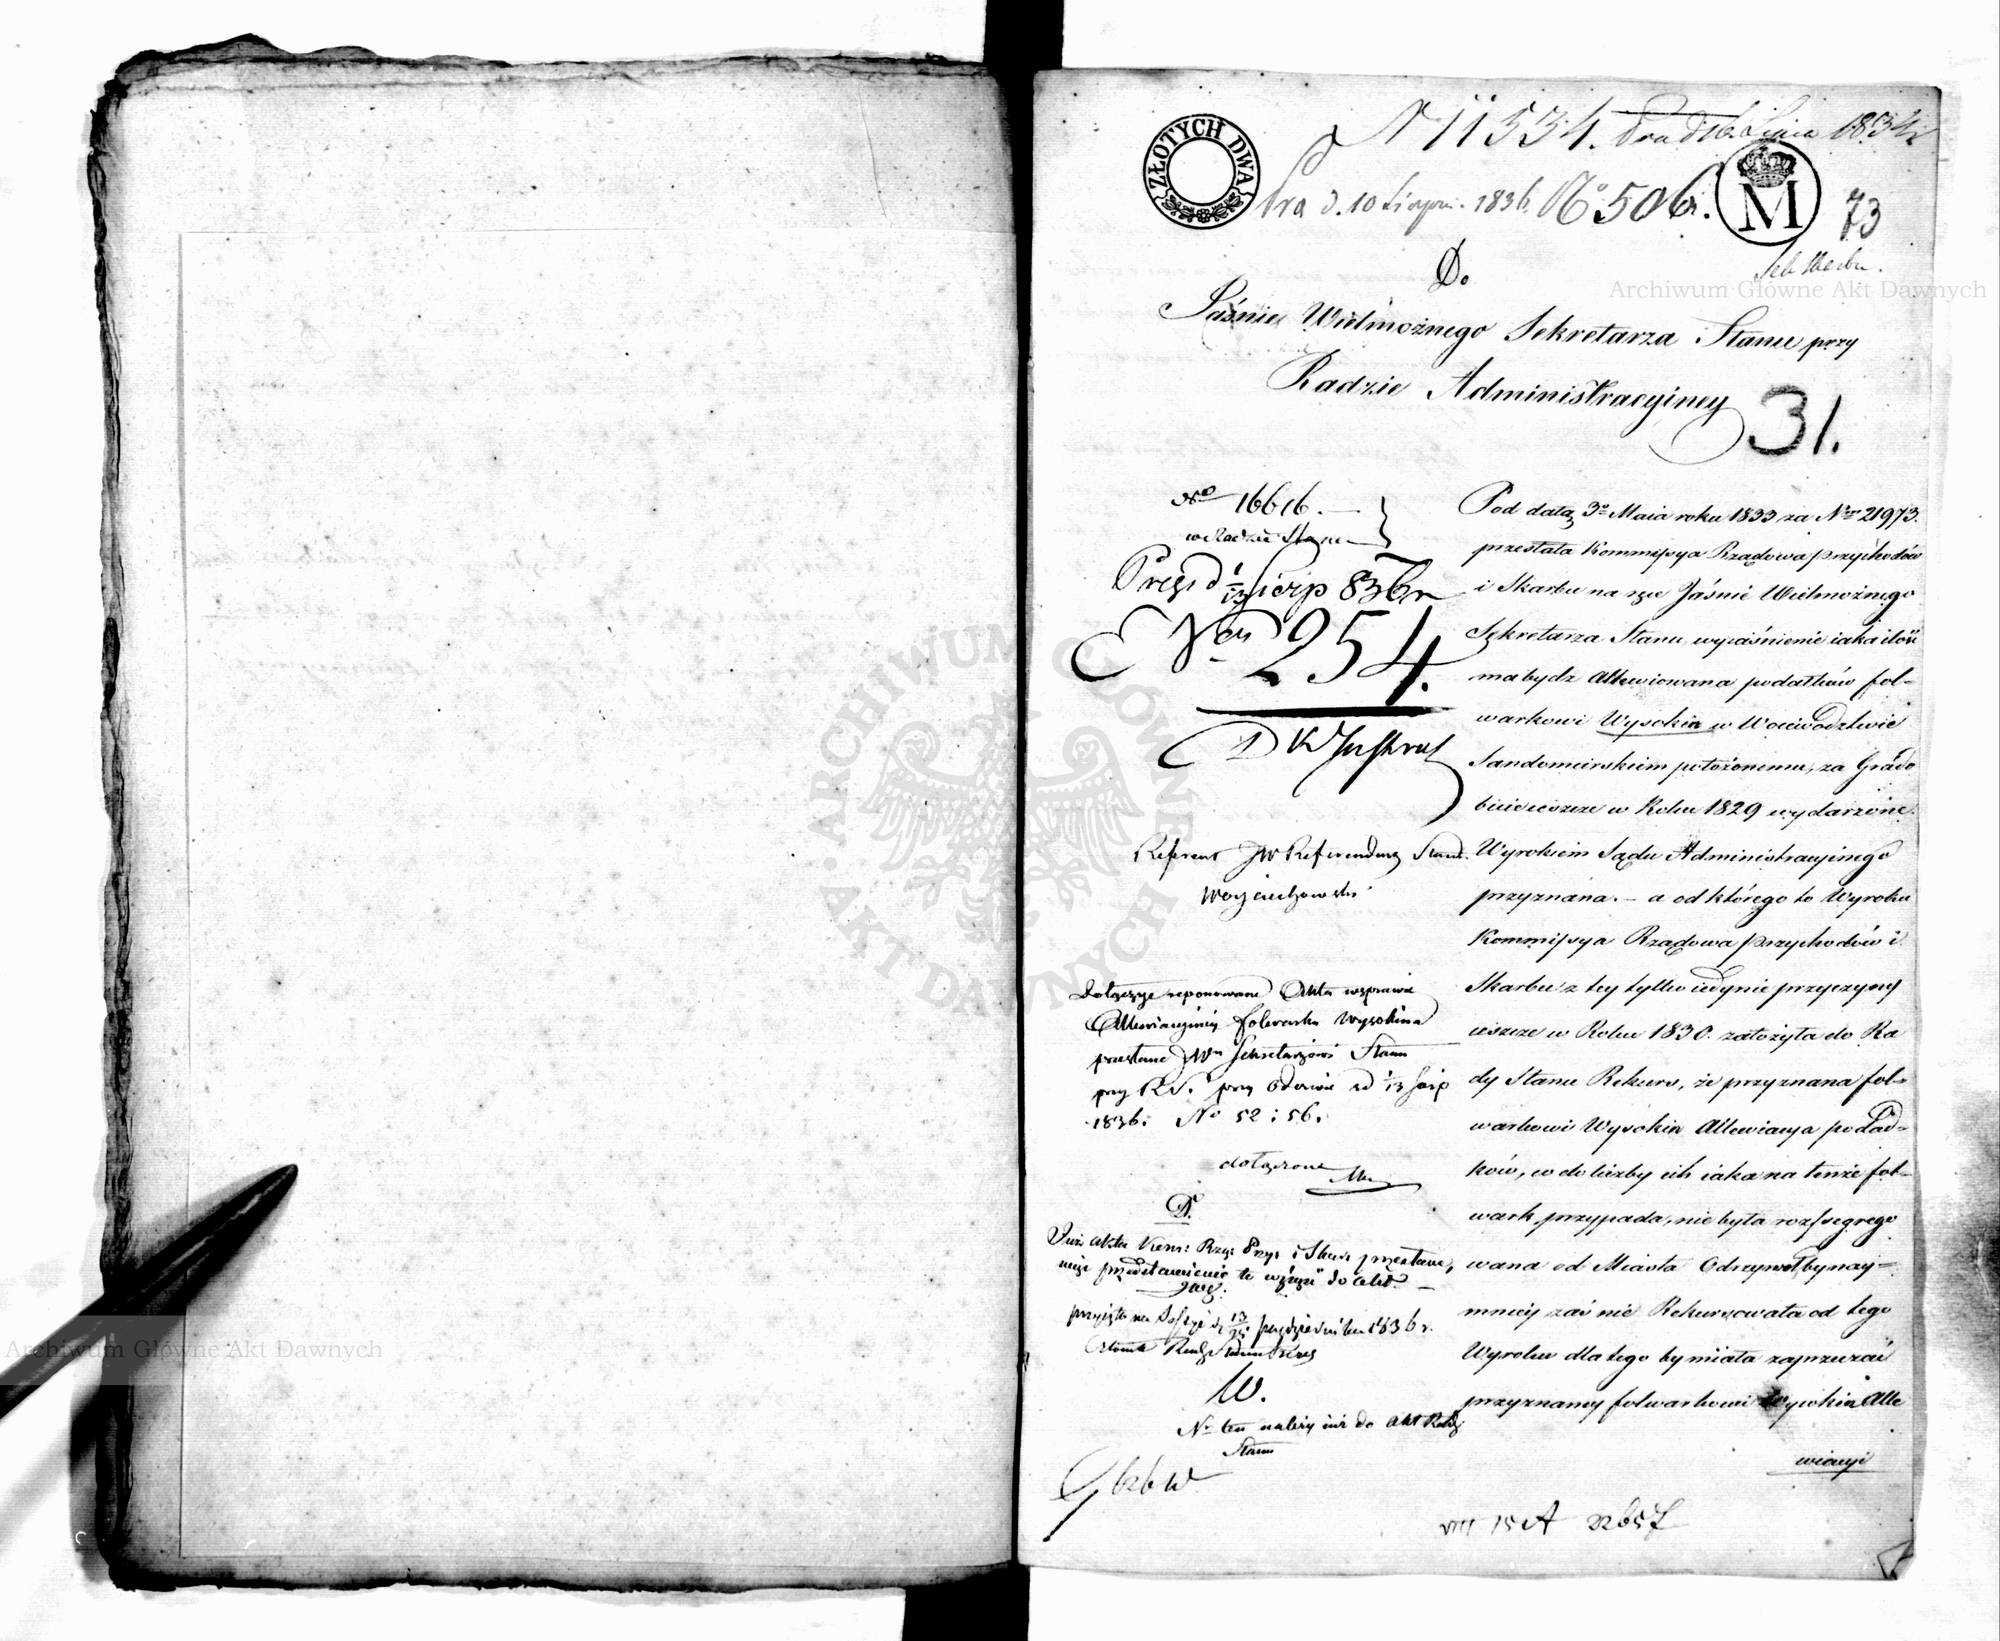 N 11534. 1834
ZŁOTYCH DWA
d. 10 Sierpn. 1836. No 506.
M
73
Do
Jaśnie Wielmożnego Sekretarza Stanu przy
Radzie Administracyiney
31.
No 16616.
w Radzie Stanu
Prez d 1/13 Sierp 836 r
Ner 254.
Referent JW Referendarz Stanu
Woyciechowski
Dołączyć reponowane Akta w sprawie
Allewiacyiney folwarku Wysokina
przesłane JWu Sekretarzowi Stanu
przy R.S. przy Odezwie z d 1/13 Sierp
1836. No 52:56.
dołączone
D.
akta Kom: Rzą: Przy: i Skar: przesłane,
przedstawienie to do akt
przyięto na Sessyi d. 13/25 października 1836 r.
W.
Nr ten należy iuż do Akt Rady
Stanu
Pod datą 3o Maia roku 1833 za Nrem 21973.
przesłała Kommissya Rządowa Przychodów
i Skarbu na ręce Jaśnie Wielmożnego
Sekretarza Stanu, wyiaśnienie iaka ilość
ma bydź Allewiowana podatków fol-
warkowi Wysokin w Woiewództwie
Sandomierskiem położonemu, za Grado
bicie ieszcze w Roku 1829 wydarzone.
Wyrokiem Sądu Administracyinego
przyznana. — a od którego to Wyroku
Kommissya Rządowa Przychodów i
Skarbu z tey tylko iedynie przyczyny
ieszcze w Roku 1830. założyła do Ra
dy Stanu Rekurs, że przyznana fol-
warkowi Wysokin Allewiacya podat-
ków, w do liczby ich iaka na tenże fol-
wark przypada, nie była rozsegrego
wana od Miasta Odrzywoł, bynay-
mniey zaś nie Rekursowała od tego
Wyroku dla tego by miała zaprzeczać
przyznaney folwarkowi Wysokin Alle
wiacyi
VIII 15 A 22657
Archiwum Główne Akt Dawnych
Archiwum Główne Akt Dawnych
ARCHIWUM GŁÓWNE AKT DAWNYCH